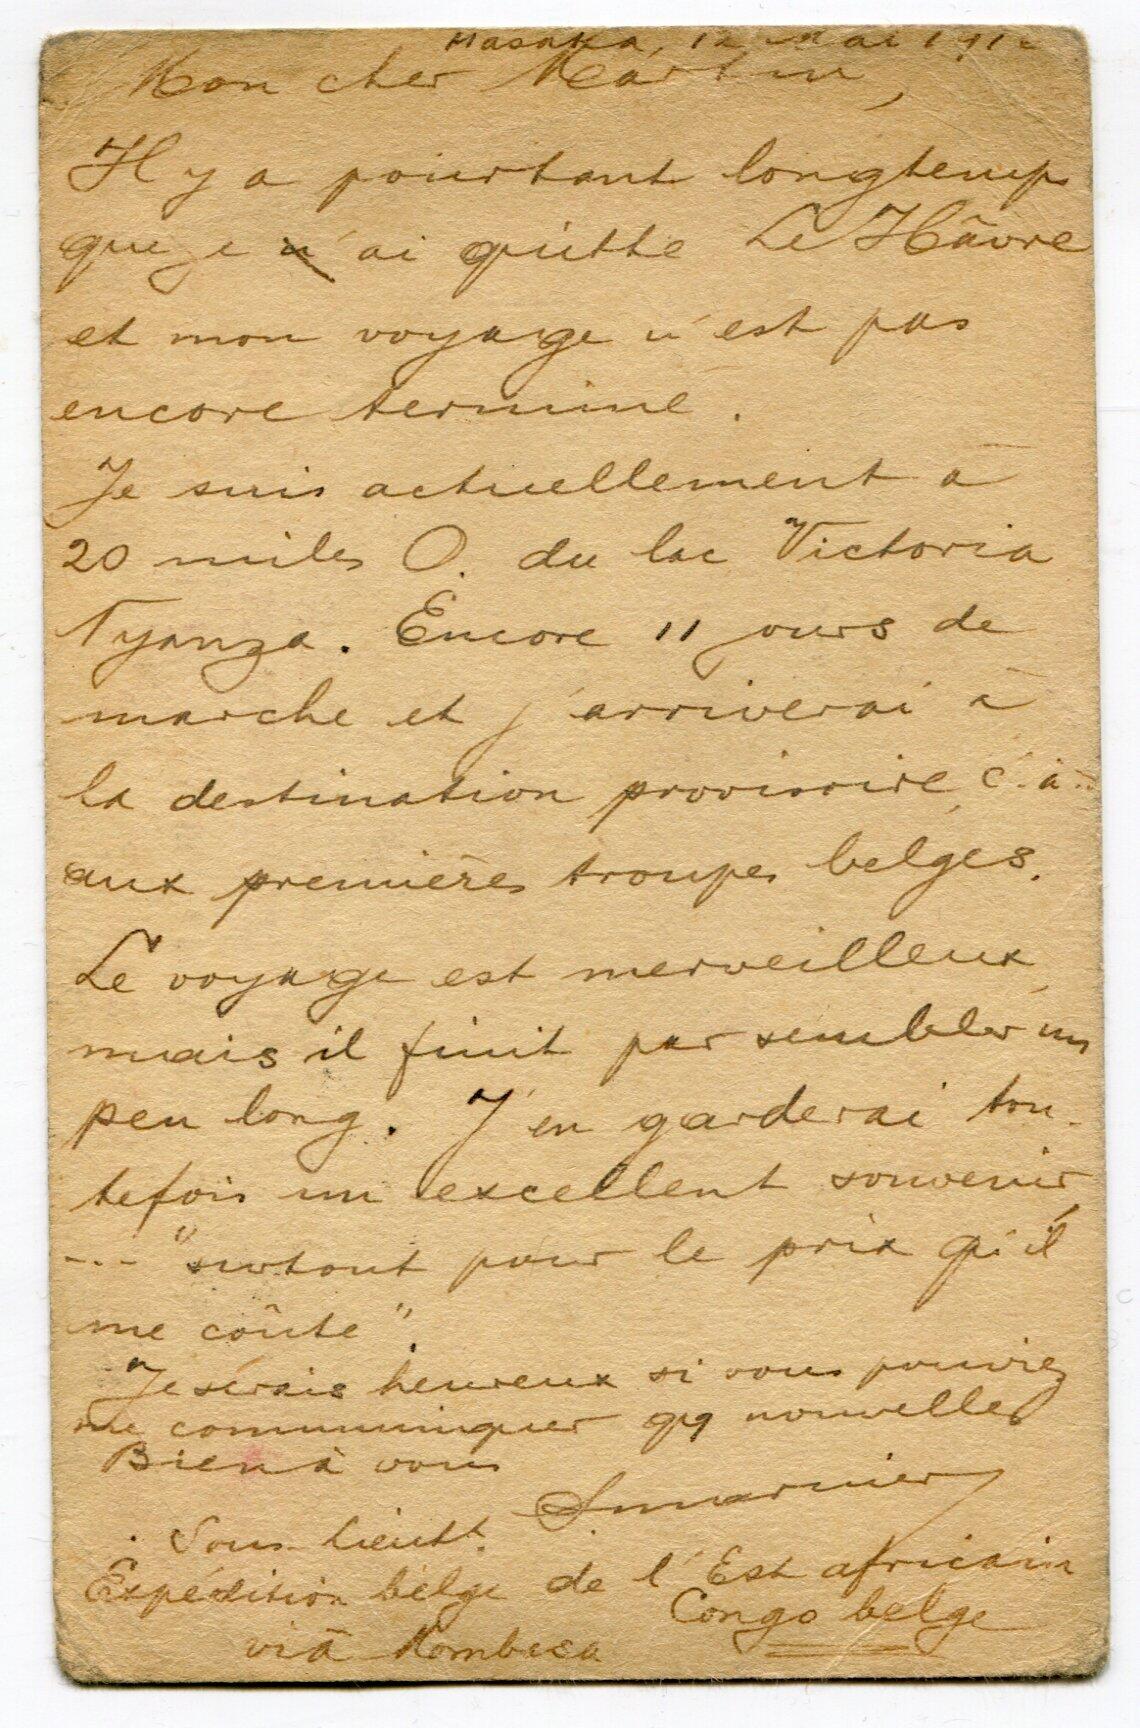 Masaka, 12 Mai 191
Mon cher Martin,
Il y a pourtant longtemps
que je n'ai quitté Le Hâvre
et mon voyage n'est pas
encore terminé.
Je suis actuellement à
20 miles O. du lac Victoria
Nyanza. Encore 11 jours de
marche et j'arriverai à
la destination provisoire, c.à.
aux premières troupes belges.
Le voyage est merveilleux,
mais il finit par sembler un
peu long. J'en garderai tou-
tefois un excellent souvenir,
--- "surtout pour le prix qu'il
me coûte".
Je serais heureux si vous pouviez
me communiquer qq nouvelles
Bien à vous
Sous-lieutt.
Expédition belge de l'Est africain
Congo belge
viâ Mombasa